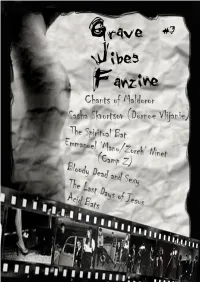 Grave
#3
Vibes
Fanzine
Chants of Maldoror
Sasha Skvortsov (Durnoe Vlijanie)
The Spiritual Bat
Emmanuel 'Manu/Zorch' Ninet
(Camp Z)
Bloody Dead and Sexy
The Last Days of Jesus
Acid Bats